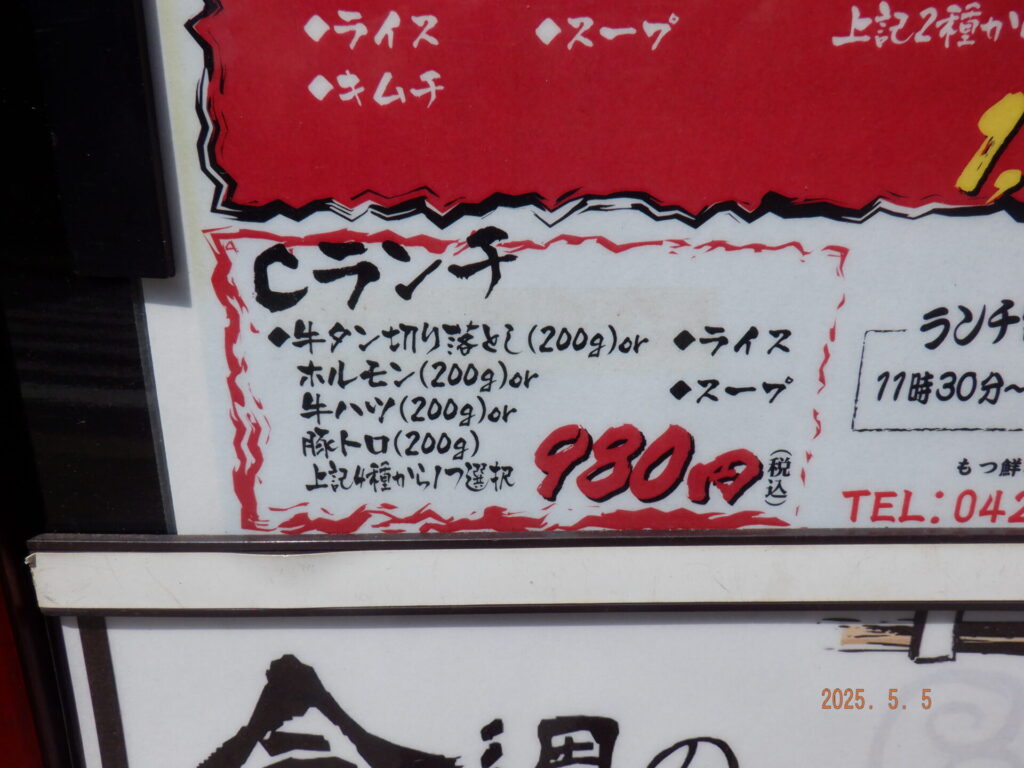 ◆ライス ◆スープ 上記2種か
◆キムチ
1,
Cランチ
◆牛タン切り落とし(200g)or ◆ライス
ホルモン(200g)or ◆スープ
牛ハツ(200g)or
豚トロ(200g)
上記4種から1つ選択
980円(税込)
ランチ
11時30分~
もつ鮮
TEL:042
今週の
2025. 5. 5